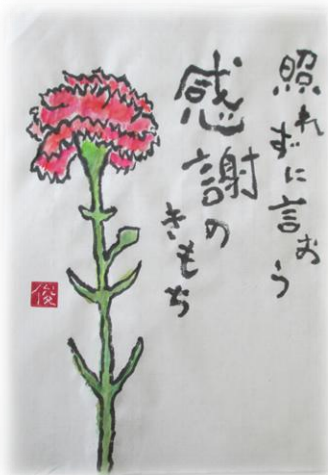 照れずに言おう
感謝の
きもち
俊